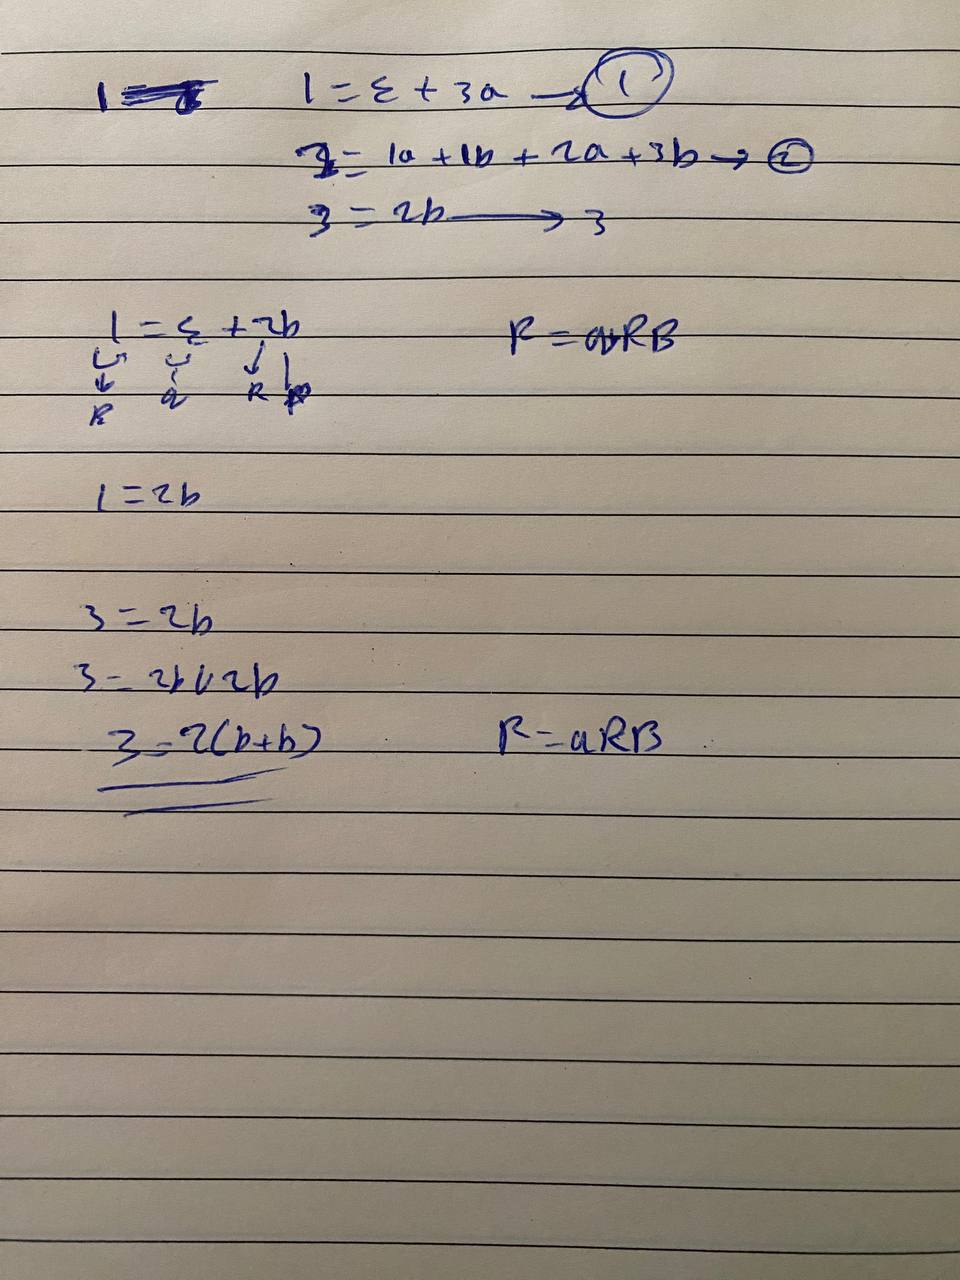 1 = ε + 3a → 1
2 = 1a + 1b + 2a + 3b → 2
3 = 2b → 3
1 = ε + 2b R = a+RB
R a R
1 = 2b
3 = 2b
3 = 2b 2b
3 = 2(b+b) R = aRB